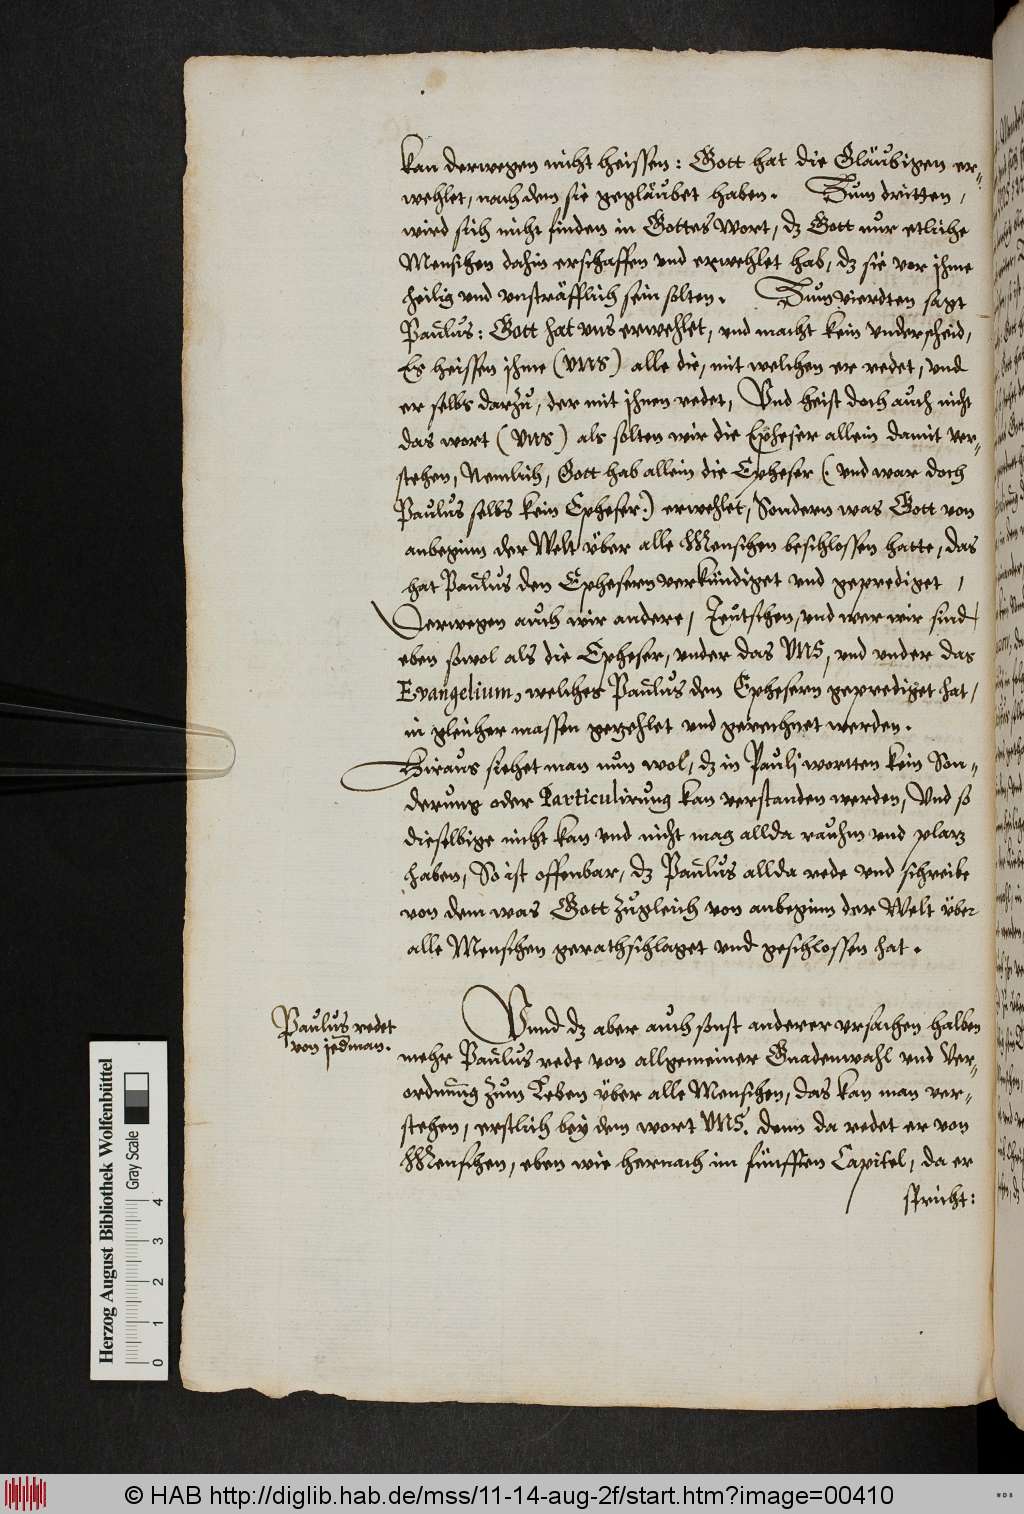 kan derwegen nicht heissen: Gott hat die Gläubigen er-
wehlet, nach dem sie gegläubet haben. Zum dritten,
wird sich nicht finden in Gottes Wort, dz Gott nur etliche
Menschen dahin erschaffen und erwehlet hab, dz sie vor ihme
heilig und unsträfflich sein solten. Zum vierdten sagt
Paulus: Gott hat uns erwehlet, und macht kein underscheid,
Es heissen ihme (UNS) alle die, mit welchen er redet, und
er selbs darzu, der mit ihnen redet, Und heist doch auch nicht
das wort (UNS) als solten wir die Epheser allein damit ver-
stehen, Nemlich, Gott hab allein die Epheser (: und war doch
Paulus selbs kein Epheser:) erwehlet, Sondern was Gott von
anbeginn der Welt über alle Menschen beschlossen hatte, das
hat Paulus den Ephesern verkündiget und geprediget,
Derwegen auch wir andere, Teutschen, und wer wir sind,
eben sowol als die Epheser, under das UNS, und under das
Evangelium, welches Paulus den Ephesern geprediget hat,
in gleicher massen gezehlet und gerechnet werden.
Hieraus siehet man nun wol, dz in Pauli wortten kein Son-
derung oder Particulirung kan verstanden werden, Und so
dieselbige nicht kan und nicht mag allda rauhm und platz
haben, So ist offenbar, dz Paulus allda rede und schreibe
von dem was Gott zugleich von anbeginn der Welt über
alle Menschen gerathschlaget und geschlossen hat.
Paulus redet
von jedman.
Unnd dz aber auch sonst anderer ursachen halben
mehr Paulus rede von allgemeiner Gnadenwahl und Ver-
ordnung zum Leben über alle Menschen, das kan man ver-
stehen, erstlich bey dem wort UNS. denn da redet er von
Menschen, eben wie hernach im fünfften Capitel, da er
spricht:
Herzog August Bibliothek Wolfenbüttel
Gray Scale
0 1 2 3 4
© HAB http://diglib.hab.de/mss/11-14-aug-2f/start.htm?image=00410